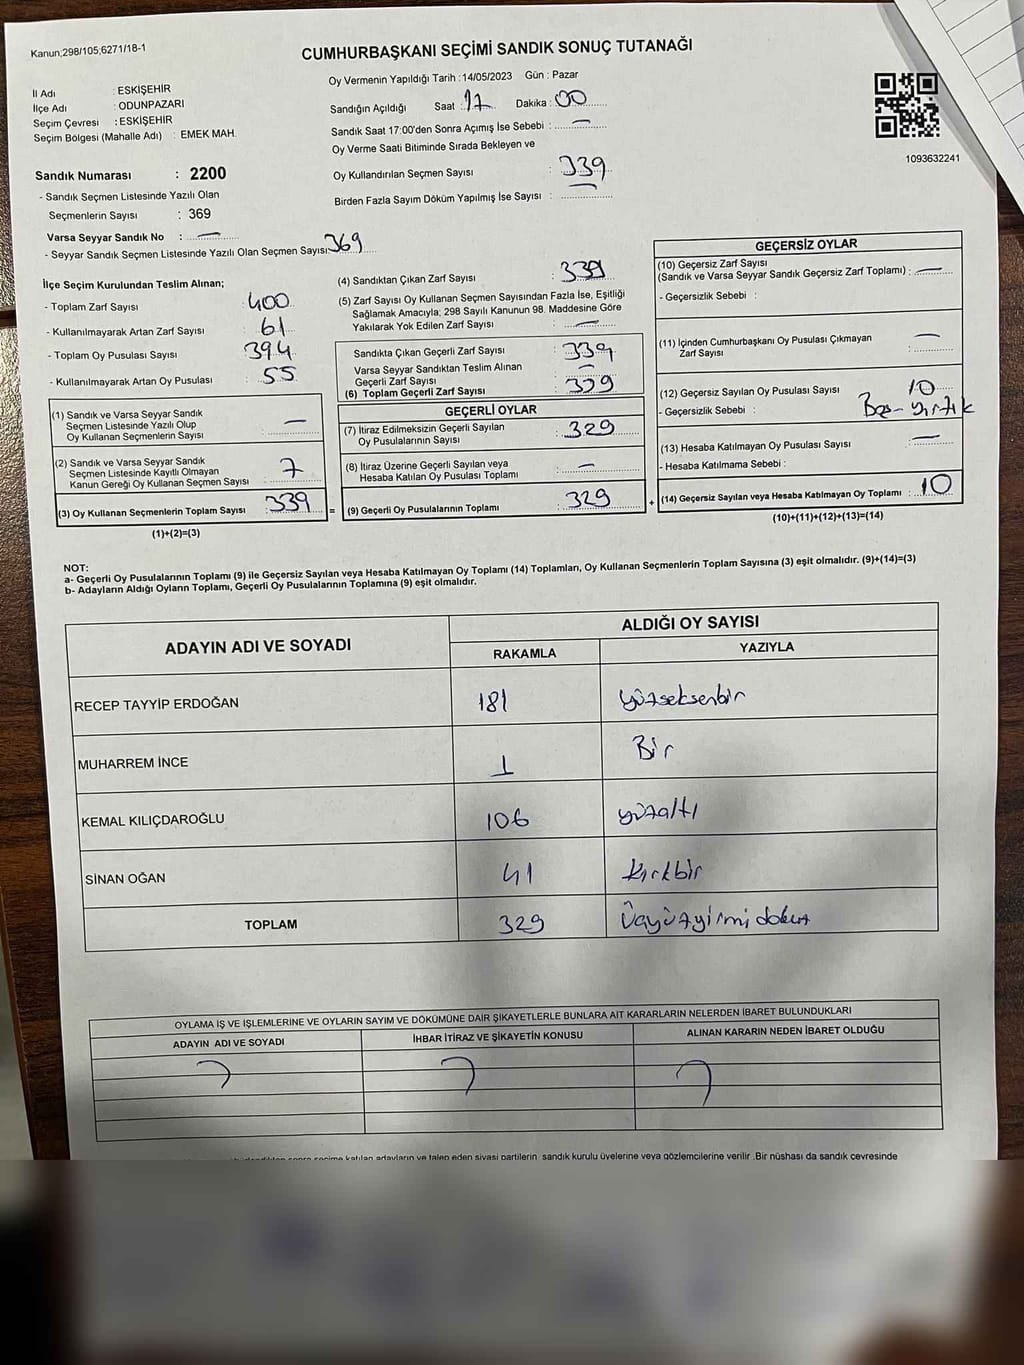 Kanun;298/105;6271/18-1
CUMHURBAŞKANI SEÇİMİ SANDIK SONUÇ TUTANAĞI
İl Adı : ESKİŞEHİR
İlçe Adı : ODUNPAZARI
Seçim Çevresi : ESKİŞEHİR
Seçim Bölgesi (Mahalle Adı) : EMEK MAH.
Sandık Numarası : 2200
- Sandık Seçmen Listesinde Yazılı Olan
Seçmenlerin Sayısı : 369
Varsa Seyyar Sandık No : —
- Seyyar Sandık Seçmen Listesinde Yazılı Olan Seçmen Sayısı: 369
Oy Vermenin Yapıldığı Tarih : 14/05/2023 Gün : Pazar
Sandığın Açıldığı Saat : 17 Dakika : 00
Sandık Saat 17:00'den Sonra Açımış İse Sebebi : —
Oy Verme Saati Bitiminde Sırada Bekleyen ve
Oy Kullandırılan Seçmen Sayısı : 339
Birden Fazla Sayım Döküm Yapılmış İse Sayısı : —
1093632241
İlçe Seçim Kurulundan Teslim Alınan;
- Toplam Zarf Sayısı : 400
- Kullanılmayarak Artan Zarf Sayısı : 61
- Toplam Oy Pusulası Sayısı : 394
- Kullanılmayarak Artan Oy Pusulası : 55
(1) Sandık ve Varsa Seyyar Sandık
Seçmen Listesinde Yazılı Olup
Oy Kullanan Seçmenlerin Sayısı : —
(2) Sandık ve Varsa Seyyar Sandık
Seçmen Listesinde Kayıtlı Olmayan
Kanun Gereği Oy Kullanan Seçmen Sayısı : 7
(3) Oy Kullanan Seçmenlerin Toplam Sayısı : 339
(1)+(2)=(3)
(4) Sandıktan Çıkan Zarf Sayısı : 339
(5) Zarf Sayısı Oy Kullanan Seçmen Sayısından Fazla İse, Eşitliği
Sağlamak Amacıyla; 298 Sayılı Kanunun 98. Maddesine Göre
Yakılarak Yok Edilen Zarf Sayısı : —
Sandıkta Çıkan Geçerli Zarf Sayısı : 339
Varsa Seyyar Sandıktan Teslim Alınan
Geçerli Zarf Sayısı : —
(6) Toplam Geçerli Zarf Sayısı : 339
GEÇERLİ OYLAR
(7) İtiraz Edilmeksizin Geçerli Sayılan
Oy Pusulalarının Sayısı : 329
(8) İtiraz Üzerine Geçerli Sayılan veya
Hesaba Katılan Oy Pusulası Toplamı : —
= (9) Geçerli Oy Pusulalarının Toplamı : 329 +
GEÇERSİZ OYLAR
(10) Geçersiz Zarf Sayısı
(Sandık ve Varsa Seyyar Sandık Geçersiz Zarf Toplamı) : —
- Geçersizlik Sebebi :
(11) İçinden Cumhurbaşkanı Oy Pusulası Çıkmayan
Zarf Sayısı : —
(12) Geçersiz Sayılan Oy Pusulası Sayısı : 10
- Geçersizlik Sebebi : Boş-yırtık
(13) Hesaba Katılmayan Oy Pusulası Sayısı : —
- Hesaba Katılmama Sebebi :
(14) Geçersiz Sayılan veya Hesaba Katılmayan Oy Toplamı : 10
(10)+(11)+(12)+(13)=(14)
NOT:
a- Geçerli Oy Pusulalarının Toplamı (9) ile Geçersiz Sayılan veya Hesaba Katılmayan Oy Toplamı (14) Toplamları, Oy Kullanan Seçmenlerin Toplam Sayısına (3) eşit olmalıdır. (9)+(14)=(3)
b- Adayların Aldığı Oyların Toplamı, Geçerli Oy Pusulalarının Toplamına (9) eşit olmalıdır.
ADAYIN ADI VE SOYADI ALDIĞI OY SAYISI
RAKAMLA YAZIYLA
RECEP TAYYİP ERDOĞAN 181 yüzseksenbir
MUHARREM İNCE 1 Bir
KEMAL KILIÇDAROĞLU 106 yüzaltı
SİNAN OĞAN 41 Kırkbir
TOPLAM 329 Üçyüzyirmidokuz
OYLAMA İŞ VE İŞLEMLERİNE VE OYLARIN SAYIM VE DÖKÜMÜNE DAİR ŞİKAYETLERLE BUNLARA AİT KARARLARIN NELERDEN İBARET BULUNDUKLARI
ADAYIN ADI VE SOYADI İHBAR İTİRAZ VE ŞİKAYETİN KONUSU ALINAN KARARIN NEDEN İBARET OLDUĞU
sonra seçime katılan adayların ve talep eden siyasi partilerin, sandık kurulu üyelerine veya gözlemcilerine verilir. Bir nüshası da sandık çevresinde